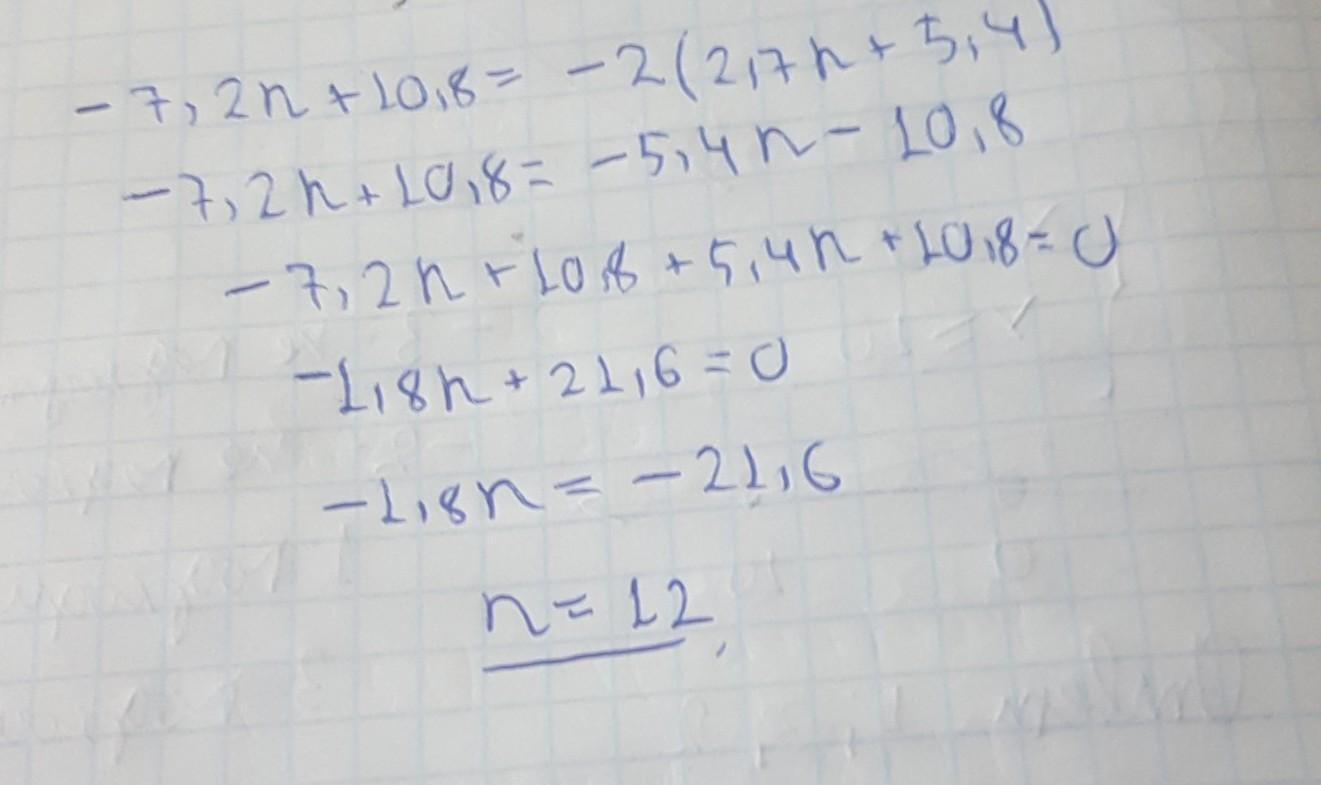 -7,2n+10,8= -2(2,7n+5,4)
-7,2n+10,8= -5,4n-10,8
-7,2n+10,8+5,4n+10,8=0
-1,8n+21,6=0
-1,8n=-21,6
n=12,